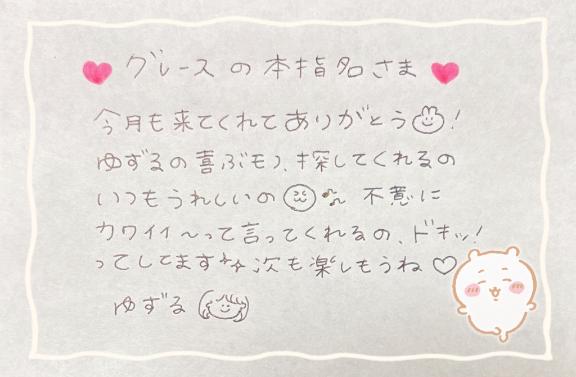 グレースの本指名さま
今月も来てくれてありがとう!
ゆずるの喜ぶモノ、探してくれるの
いつもうれしいの 不意に
カワイイ〜って言ってくれるの、ドキッ!
ってしてます 次も楽しもうね♡
ゆずる